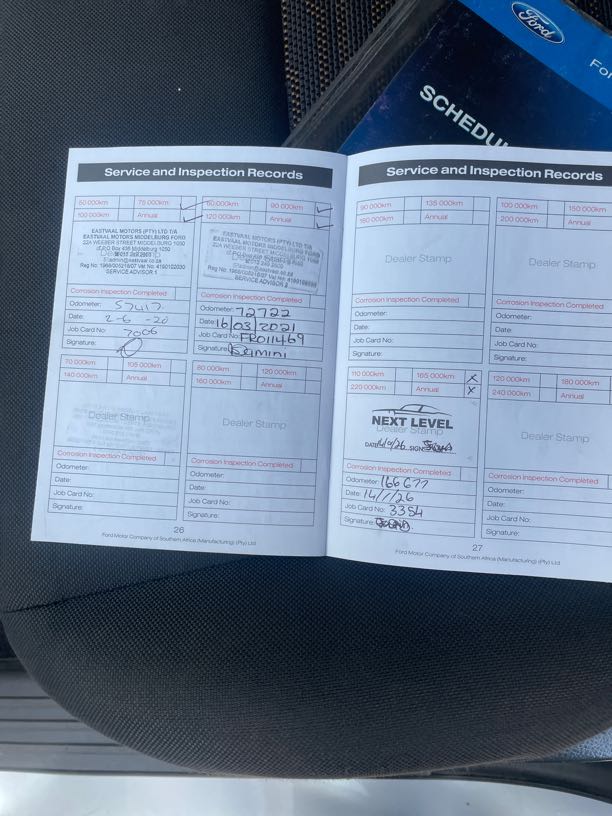 Ford
For
SCHEDU
Service and Inspection Records
50 000km 75 000km
100 000km Annual
EASTVAAL MOTORS (PTY) LTD T/A
EASTVAAL MOTORS MIDDELBURG FORD
22A WEEBER STREET MIDDELBURG 1050
P.O Box 436 Middelburg 1050
Reg No: 1966/005218/07 Vat No: 4190102030
SERVICE ADVISOR 1
Corrosion Inspection Completed
Odometer:
Date: 2-6-20
Job Card No: 7006
Signature:
60 000km 90 000km
120 000km Annual
EASTVAAL MOTORS (PTY) LTD T/A
EASTVAAL MOTORS MIDDELBURG FORD
SERVICE ADVISOR
Corrosion Inspection Completed
Odometer: 72722
Date: 16/03/2021
Job Card No: FR011469
Signature:
70 000km 105 000km
140 000km Annual
Dealer Stamp
Corrosion Inspection Completed
Odometer:
Date:
Job Card No:
Signature:
80 000km 120 000km
160 000km Annual
Dealer Stamp
Corrosion Inspection Completed
Odometer:
Date:
Job Card No:
Signature:
26
Ford Motor Company of Southern Africa (Manufacturing) (Pty) Ltd
Service and Inspection Records
90 000km 135 000km
180 000km Annual
Dealer Stamp
Corrosion Inspection Completed
Odometer:
Date:
Job Card No:
Signature:
100 000km 150 000km
200 000km Annual
Dealer Stamp
Corrosion Inspection Completed
Odometer:
Date:
Job Card No:
Signature:
110 000km 165 000km X
220 000km Annual X
NEXT LEVEL
Dealer Stamp
DATE SIGN
Corrosion Inspection Completed
Odometer: 166677
Date: 14/1/26
Job Card No: 3354
Signature:
120 000km 180 000km
240 000km Annual
Dealer Stamp
Corrosion Inspection Completed
Odometer:
Date:
Job Card No:
Signature:
27
Ford Motor Company of Southern Africa (Manufacturing) (Pty) Ltd